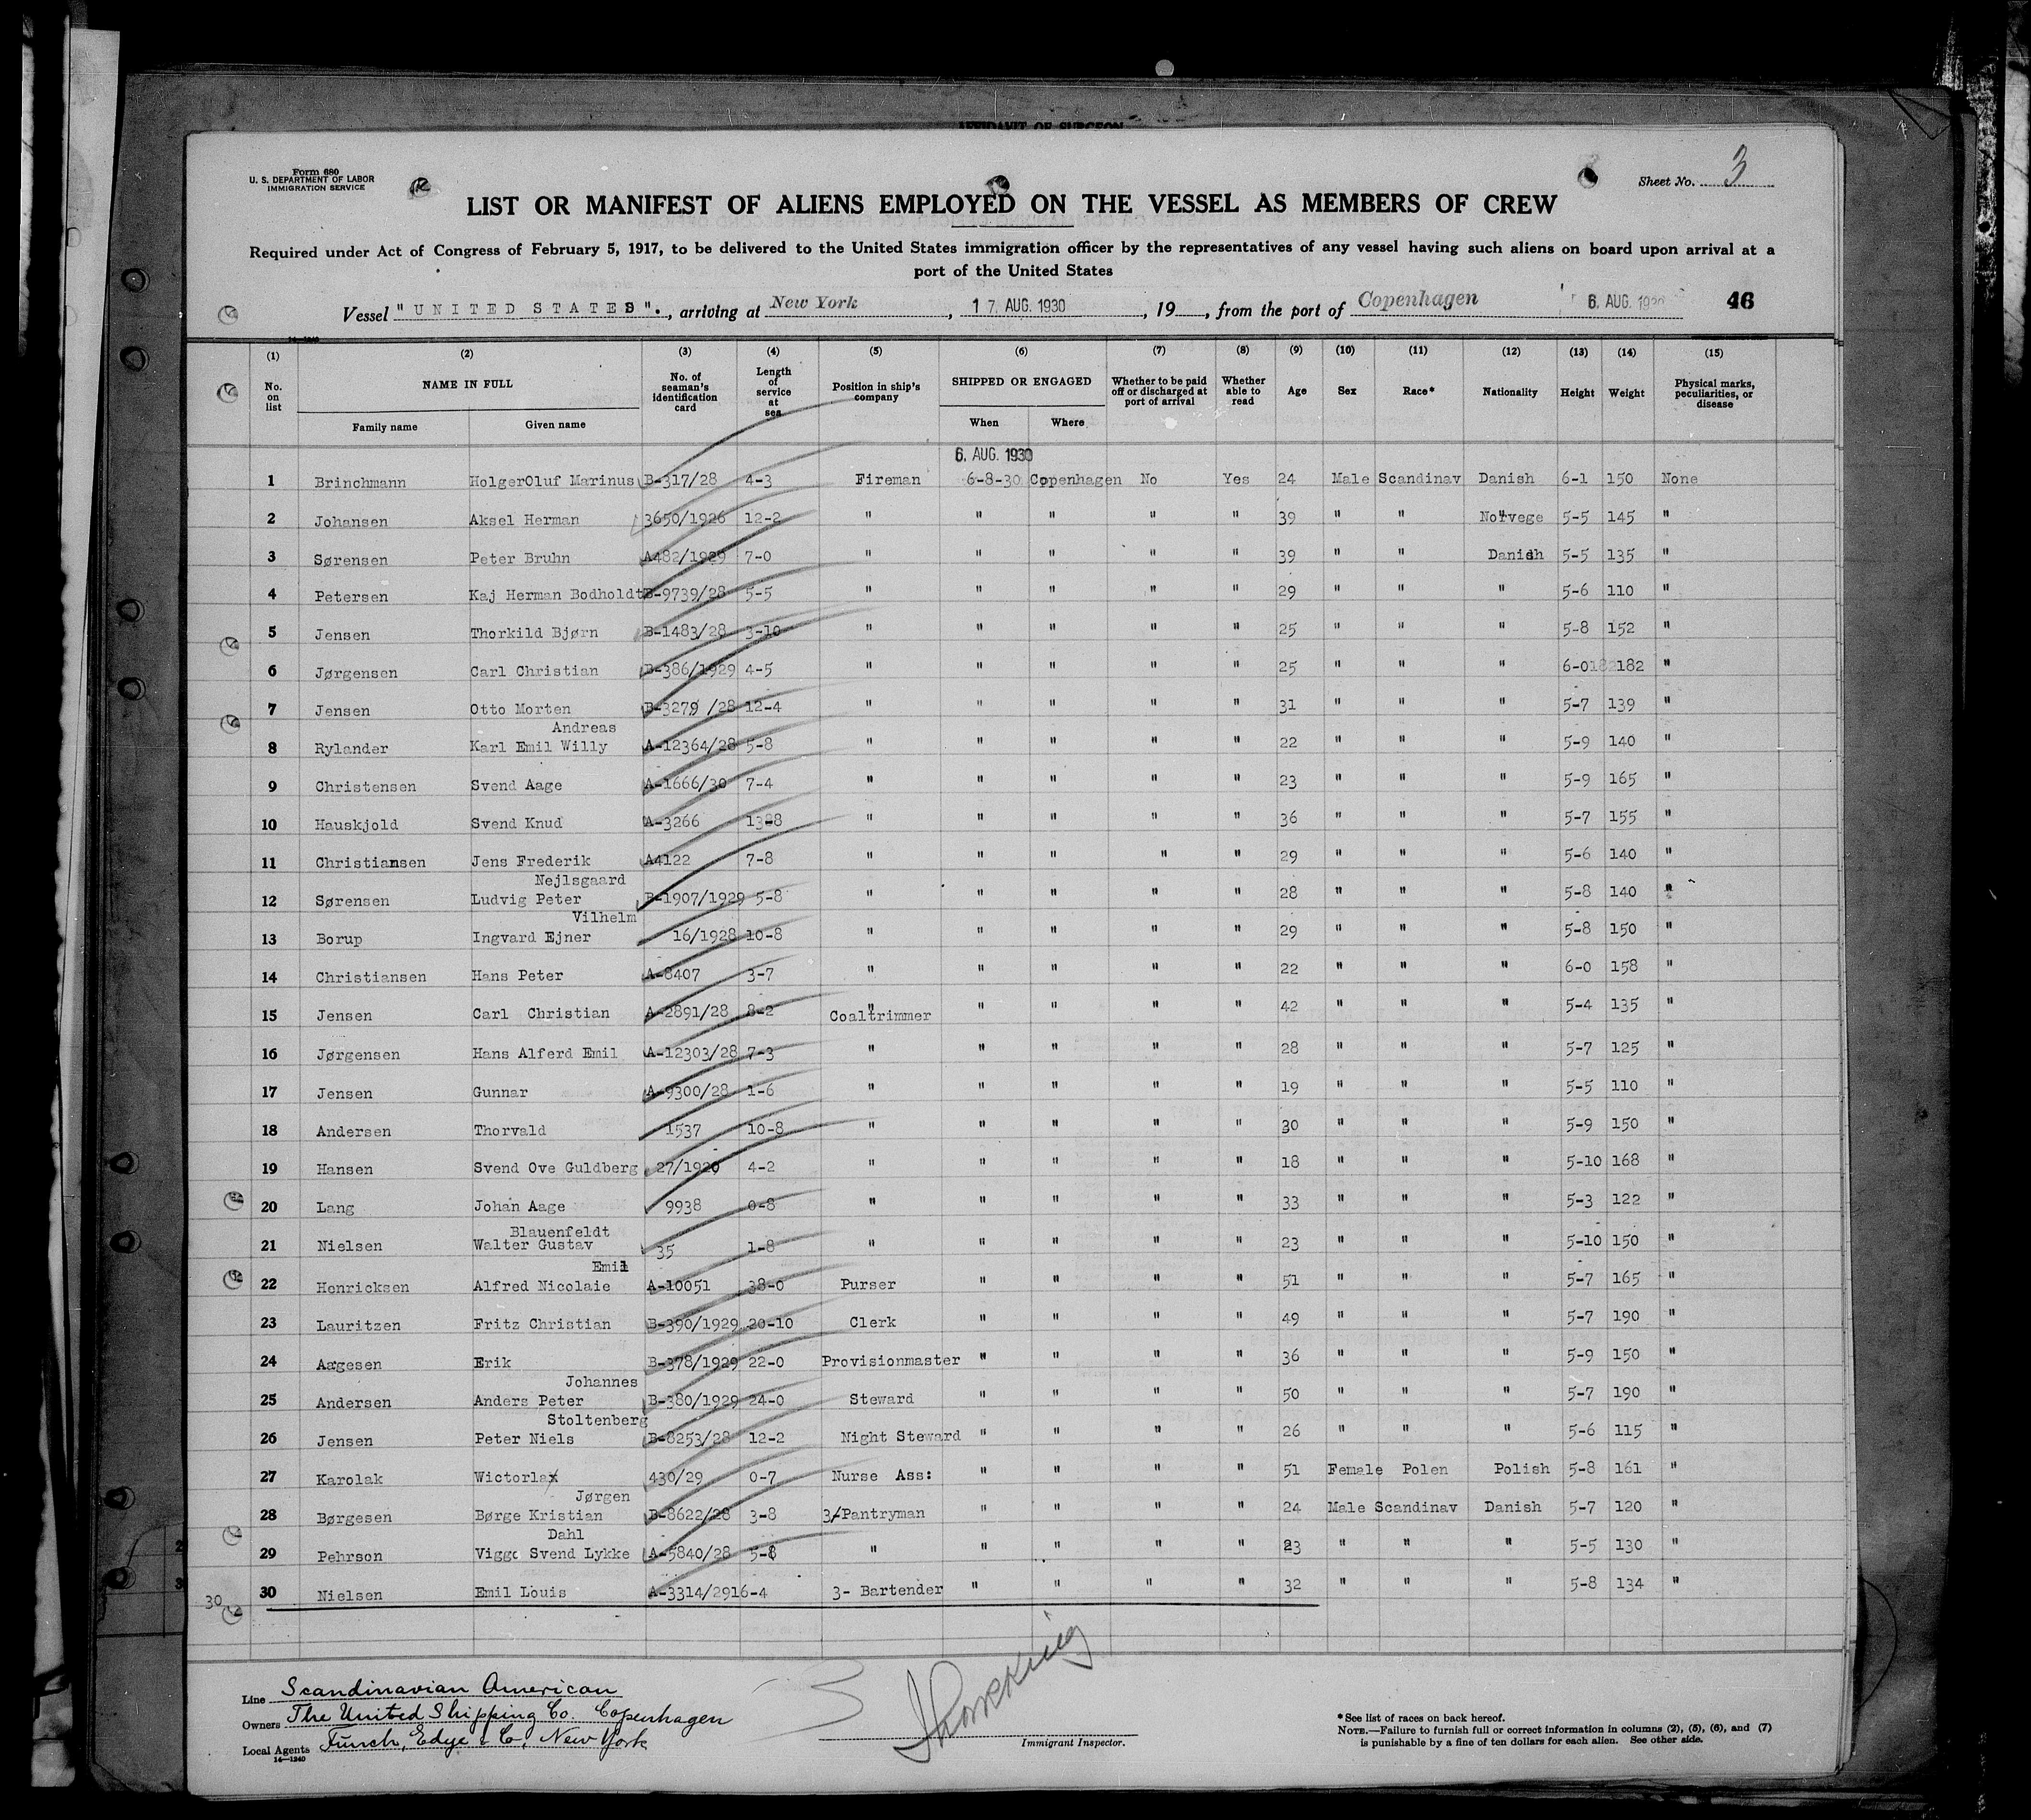 AFFIDAVIT OF SURGEON
Form 680
U. S. DEPARTMENT OF LABOR
IMMIGRATION SERVICE
Sheet No. 3
LIST OR MANIFEST OF ALIENS EMPLOYED ON THE VESSEL AS MEMBERS OF CREW
Required under Act of Congress of February 5, 1917, to be delivered to the United States immigration officer by the representatives of any vessel having such aliens on board upon arrival at a
port of the United States
Vessel "UNITED STATES"., arriving at New York, 17. AUG. 1930, 19, from the port of Copenhagen 6. AUG. 1930 46
(1) (2) (3) (4) (5) (6) (7) (8) (9) (10) (11) (12) (13) (14) (15)
No. on list NAME IN FULL No. of seaman's identification card Length of service at sea Position in ship's company SHIPPED OR ENGAGED Whether to be paid off or discharged at port of arrival Whether able to read Age Sex Race* Nationality Height Weight Physical marks, peculiarities, or disease
Family name Given name When Where
6. AUG. 1930
1 Brinchmann HolgerOluf Marinus B-317/28 4-3 Fireman 6-8-30 Copenhagen No Yes 24 Male Scandinav Danish 6-1 150 None
2 Johansen Aksel Herman 3650/1926 12-2 " " " " " 39 " " Norvege 5-5 145 "
3 Sørensen Peter Bruhn A482/1929 7-0 " " " " " 39 " " Danish 5-5 135 "
4 Petersen Kaj Herman Bodholdt B-9739/28 5-5 " " " " " 29 " " " 5-6 110 "
5 Jensen Thorkild Bjørn B-1483/28 3-10 " " " " " 25 " " " 5-8 152 "
6 Jørgensen Carl Christian B-386/1929 4-5 " " " " " 25 " " " 6-0 182 "
7 Jensen Otto Morten B-3279 /28 12-4 " " " " " 31 " " " 5-7 139 "
Andreas
8 Rylander Karl Emil Willy A-12364/28 5-8 " " " " " 22 " " " 5-9 140 "
9 Christensen Svend Aage A-1666/30 7-4 " " " " " 23 " " " 5-9 165 "
10 Hauskjold Svend Knud A-3266 13-8 " " " " " 36 " " " 5-7 155 "
11 Christiansen Jens Frederik A4122 7-8 " " " " " 29 " " " 5-6 140 "
Nejlsgaard
12 Sørensen Ludvig Peter B-1907/1929 5-8 " " " " " 28 " " " 5-8 140 "
Vilhelm
13 Borup Ingvard Ejner 16/1928 10-8 " " " " " 29 " " " 5-8 150 "
14 Christiansen Hans Peter A-8407 3-7 " " " " " 22 " " " 6-0 158 "
15 Jensen Carl Christian A-2891/28 8-2 Coaltrimmer " " " " 42 " " " 5-4 135 "
16 Jørgensen Hans Alferd Emil A-12303/28 7-3 " " " " " 28 " " " 5-7 125 "
17 Jensen Gunnar A-9300/28 1-6 " " " " " 19 " " " 5-5 110 "
18 Andersen Thorvald 1537 10-8 " " " " " 30 " " " 5-9 150 "
19 Hansen Svend Ove Guldberg 27/1920 4-2 " " " " " 18 " " " 5-10 168 "
20 Lang Johan Aage 9938 0-8 " " " " " 33 " " " 5-3 122 "
Blauenfeldt
21 Nielsen Walter Gustav 35 1-8 " " " " " 23 " " " 5-10 150 "
Emil
22 Henricksen Alfred Nicolaie A-10051 38-0 Purser " " " " 51 " " " 5-7 165 "
23 Lauritzen Fritz Christian B-390/1929 20-10 Clerk " " " " 49 " " " 5-7 190 "
24 Aagesen Erik B-378/1929 22-0 Provisionmaster " " " " 36 " " " 5-9 150 "
Johannes
25 Andersen Anders Peter B-380/1929 24-0 Steward " " " " 50 " " " 5-7 190 "
Stoltenberg
26 Jensen Peter Niels B-8253/28 12-2 Night Steward " " " " 26 " " " 5-6 115 "
27 Karolak Wictorla 430/29 0-7 Nurse Ass: " " " " 51 Female Polen Polish 5-8 161 "
Jørgen
28 Børgesen Børge Kristian B-8622/28 3-8 3/Pantryman " " " " 24 Male Scandinav Danish 5-7 120 "
Dahl
29 Pehrson Viggo Svend Lykke A-5840/28 5-8 " " " " " 23 " " " 5-5 130 "
30 Nielsen Emil Louis A-3314/2916-4 3- Bartender " " " " 32 " " " 5-8 134 "
30
Line Scandinavian American
Owners The United Shipping Co. Copenhagen
Local Agents Funch, Edye & Co, New York
14—1240
3
Immigrant Inspector.
*See list of races on back hereof.
NOTE.—Failure to furnish full or correct information in columns (2), (5), (6), and (7)
is punishable by a fine of ten dollars for each alien. See other side.